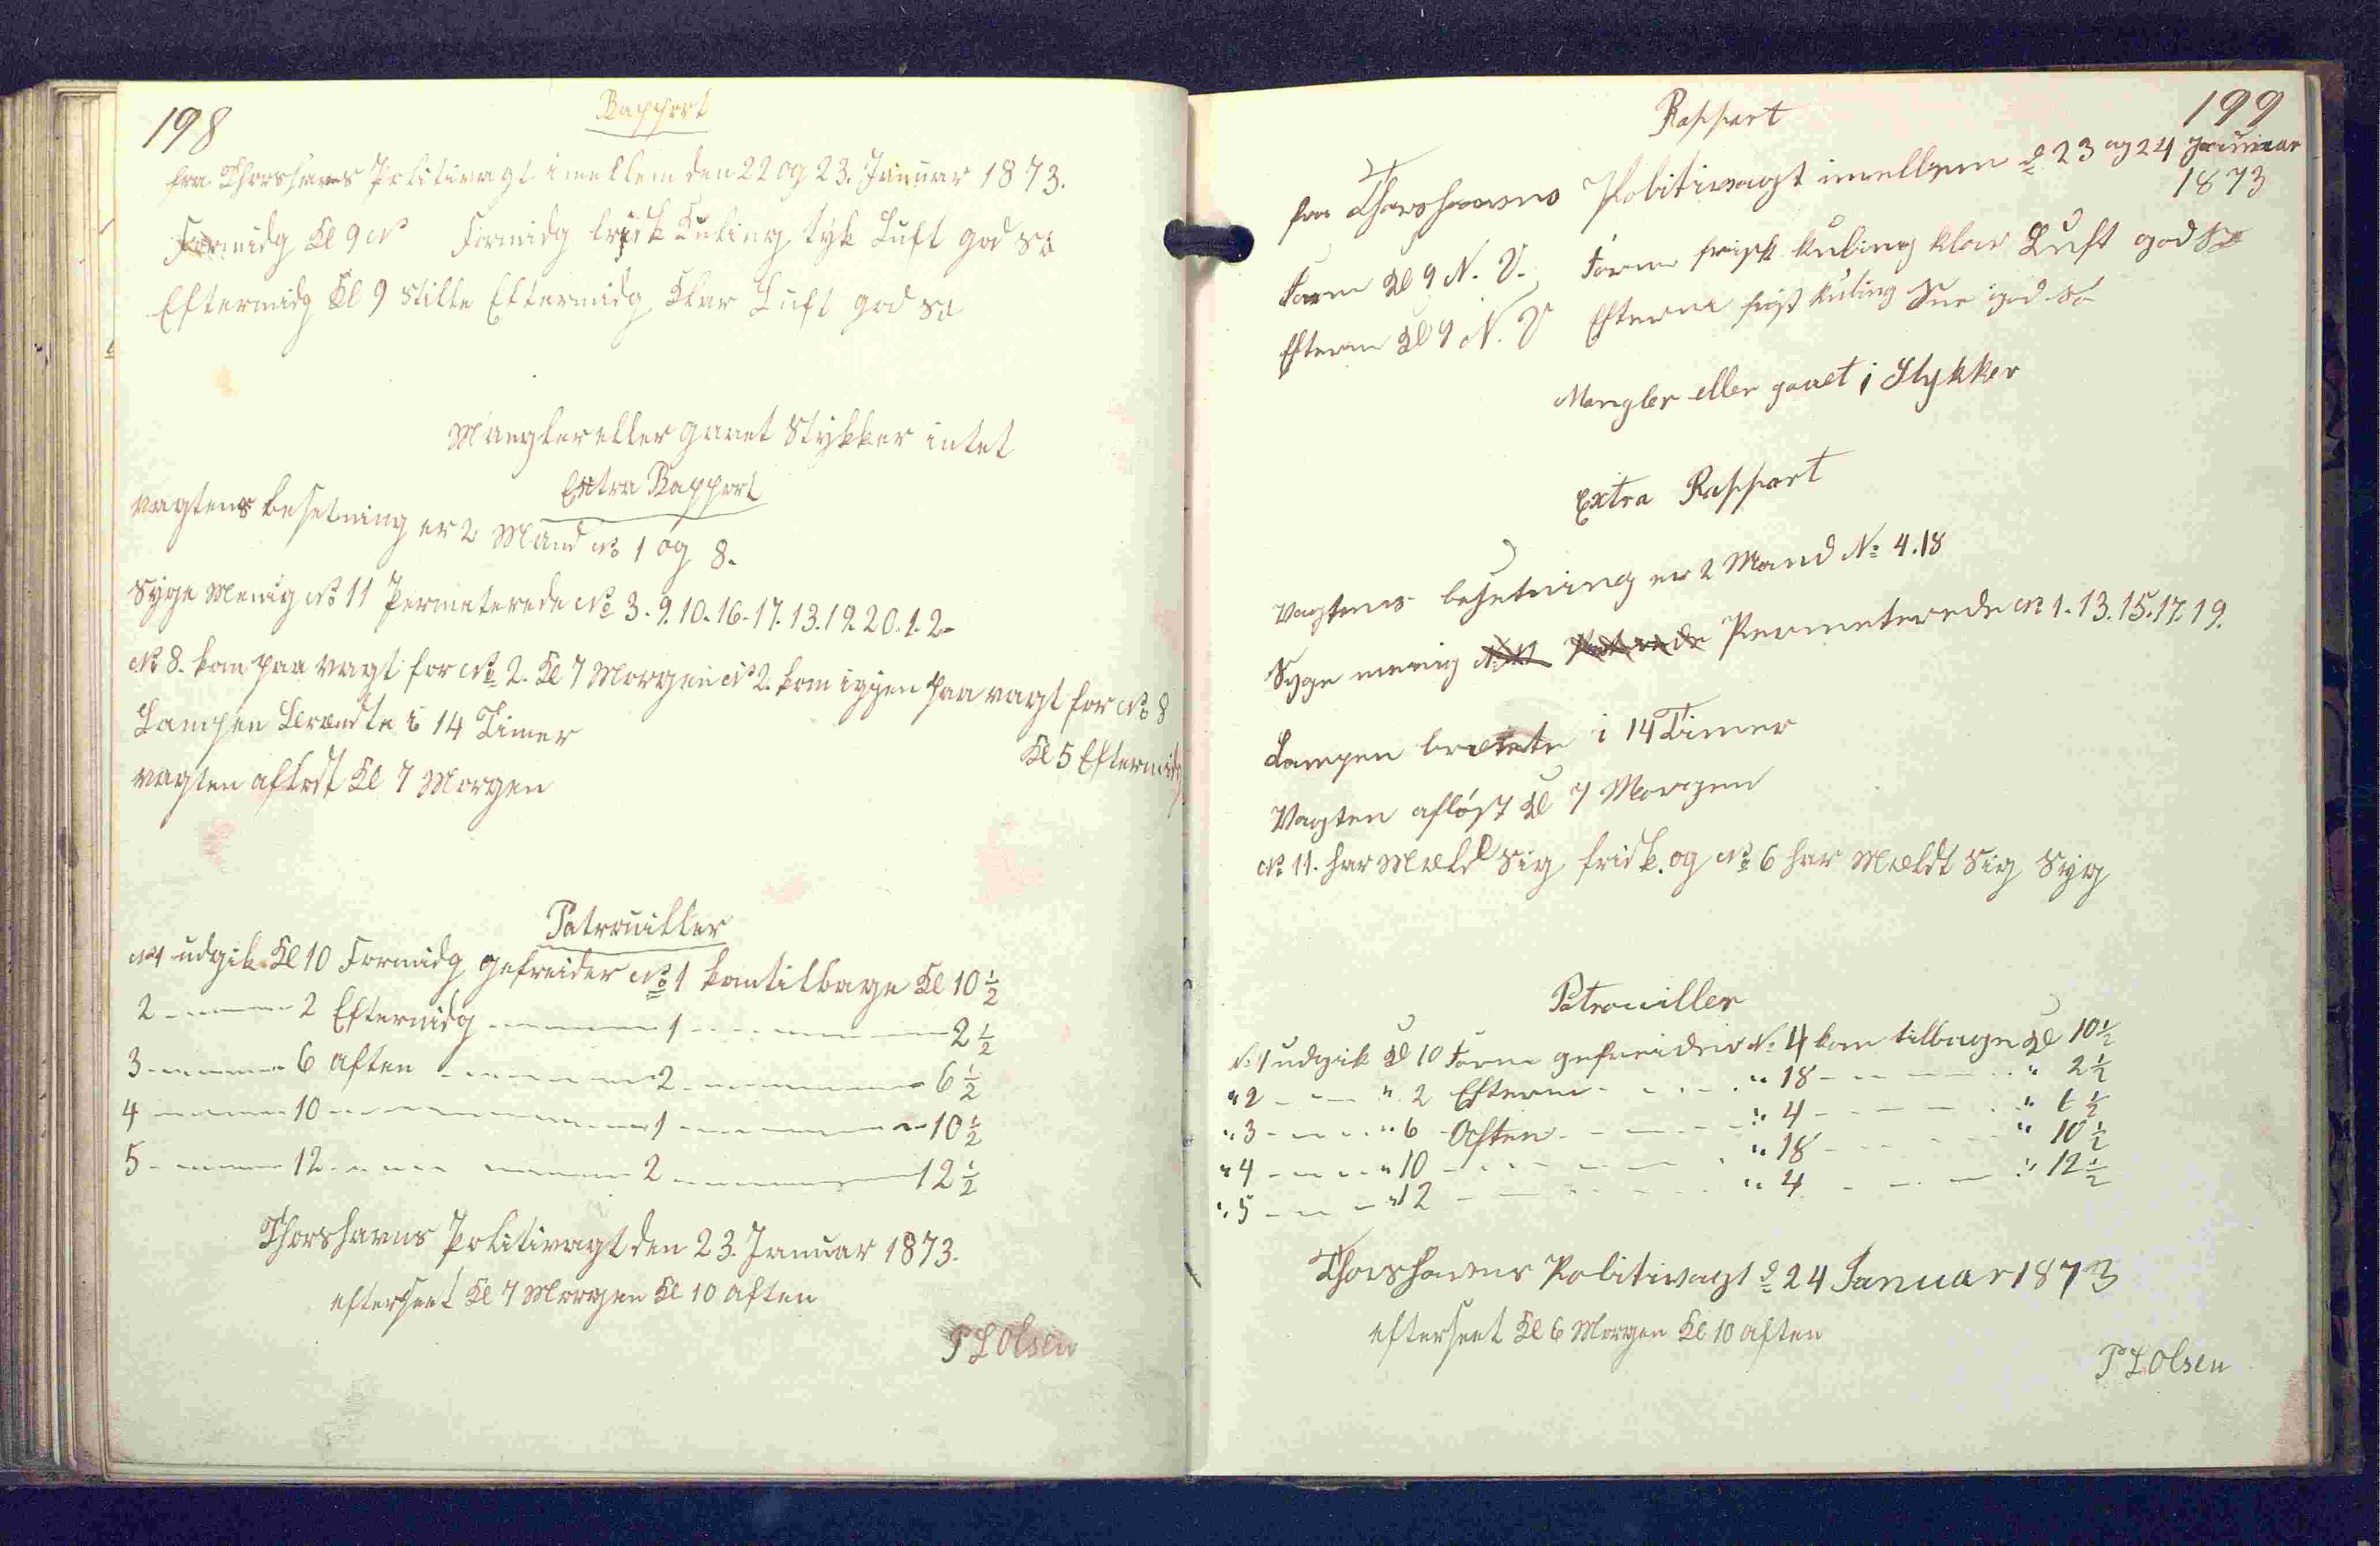 198
Rapport
fra Thorshavns Politivagt imellem den 22 og 23. Januar 1873.
Formidg Kl 9 N Formidg frisk Kuling tyk Luft god Sø
Eftermidg Kl 9 Stille Eftermidg Klar Luft god Sø
Mangler eller gaaet Stykker intet
Extra Rapport
vagtens besetning er 2 Mand No 1 og 8.
Syge Menig No 11 Permeterede No 3. 9. 10. 16. 17. 13. 19. 20. 1. 2.
No 8. kom paa vagt for No 2. Kl 7 Morgen No 2. kom igjen paa vagt for No 8
Kl 5 Eftermidg
Lampen Brændte i 14 Timer
vagten afløst Kl 7 Morgen
Patrouiller
No 1 udgik Kl 10 Formidg gefreider No 1 kom tilbage Kl 10 1/2
2 - - - 2 Eftermidg - - - 1 - - - 2 1/2
3 - - - 6 aften - - - 2 - - - 6 1/2
4 - - - 10 - - - 1 - - - 10 1/2
5 - - - 12 - - - 2 - - - 12 1/2
Thorshavns Politivagt den 23. Januar 1873.
efterseet Kl 7 Morgen Kl 10 aften
P L Olsen
199
Rappart
fra Thorshavns Politivagt imellem d 23 og 24 Januar
1873
Form Kl 9 N. V. Form frisk kuling klar Luft god Sø
Efterm Kl 9 N. V Efterm frisk kuling Sne god Sø
Mangler eller gaaet i Stykker
Extra Rappart
Vagtens besetning er 2 Mand No 4. 18
Syge menig Permeterede No 1. 13. 15. 17. 19.
Lampen brændte i 14 Timer
Vagten afløst Kl 7 Morgen
No 11. har Mældt Sig frisk. og No 6 har Mældt Sig Syg
Patrouiller
No 1 udgik Kl 10 Form gefreider No 4 kom tilbage Kl 10 1/2
" 2 - - - " 2 Efterm - - - " 18 - - - " 2 1/2
" 3 - - - " 6 Aften - - - " 4 - - - " 6 1/2
" 4 - - - " 10 - - - " 18 - - - " 10 1/2
" 5 - - - " 12 - - - " 4 - - - " 12 1/2
Thorshavns Politivagt d 24 Januar 1873
efterseet Kl 6 Morgen Kl 10 aften
P L Olsen